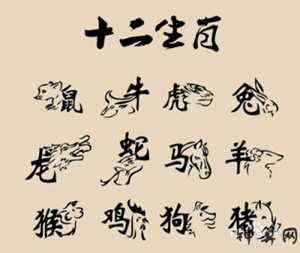 十二生肖
鼠 牛 虎 兔
龙 蛇 马 羊
猴 鸡 狗 猪
神算网